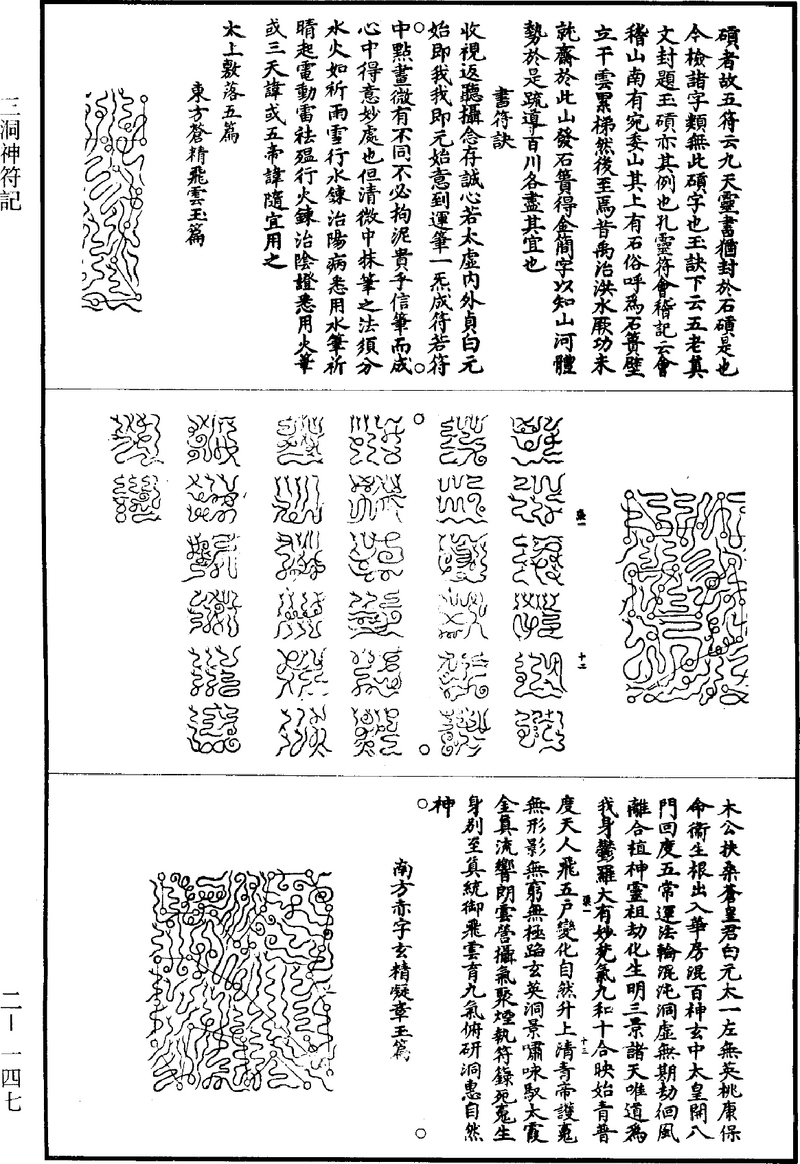 碩者故五符云九天靈書猶封於石磧是也
今檢諸字類無此碩字也玉訣下云五老真
文封題玉磧亦其例也孔靈符會稽記云會
稽山南有宛委山其上有石俗呼為石簣壁
立干雲累梯然後至焉昔禹治洪水厥功未
就齋於此山發石簣得金簡字以知山河體
勢於是疏導百川各盡其宜也
書符訣
收視返聽攝念存誠心若太虛內外貞白元
始即我我即元始意到運筆一炁成符若符
中點畫微有不同不必拘泥貴乎信筆而成
心中得意妙處也但清微中抹筆之法須分
水火如祈雨雪行水鍊治陽病悉用水筆祈
晴起電動雷祛瘟行火鍊治陰證悉用火筆
或三天諱或五帝諱隨宜用之
太上敷落五篇
東方蒼精飛雲玉篇
三洞神符記
十二
木公扶桑蒼皇君白元太一左無英桃康保
命衛生根出入華房混百神玄中太皇開八
門回度五常運法輪混沌洞虛無期劫佪風
離合植神靈祖劫化生明三景諸天唯道為
我身鬱羅大有妙堯氣九和十合映始青普
度天人飛五戶變化自然升上清青帝護魂
無形影無窮無極蹈玄英洞景嘯咏馭太霞
金真流響朗雲營攝氣聚煙執符籙死魂生
身別至真統御飛雲育九氣俯研洞惠自然
神
十三
南方赤字玄精凝章玉篇
二—一四七